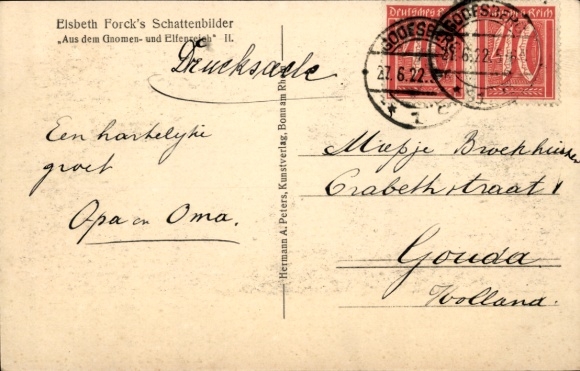 Elsbeth Forck's Schattenbilder
„Aus dem Gnomen- und Elfenreich" II.
Drucksache
Een hartelijke
groet
Opa en Oma.
Hermann A. Peters, Kunstverlag, Bonn am Rh
Deutsches Reich
40
GODESBERG
27.6.22.
Miepje Broekhuizen
Crabethstraat
Gouda.
Holland.